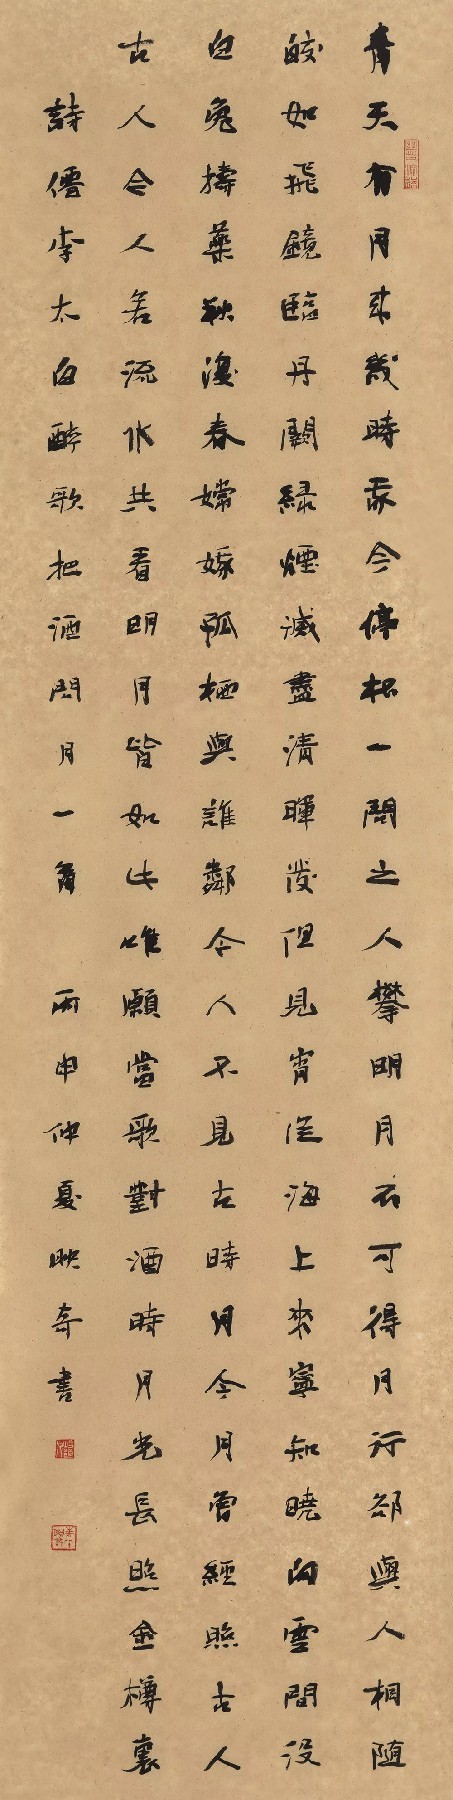 青天有月來幾時我今停杯一問之人攀明月不可得月行卻與人相隨
皎如飛鏡臨丹闕綠煙滅盡清暉發但見宵從海上來寧知曉向雲間沒
白兔擣藥秋復春嫦娥孤棲與誰鄰今人不見古時月今月曾經照古人
古人今人若流水共看明月皆如此唯願當歌對酒時月光長照金樽裏
詩僊李太白醉歌把酒問月一首 丙申仲夏映奇書